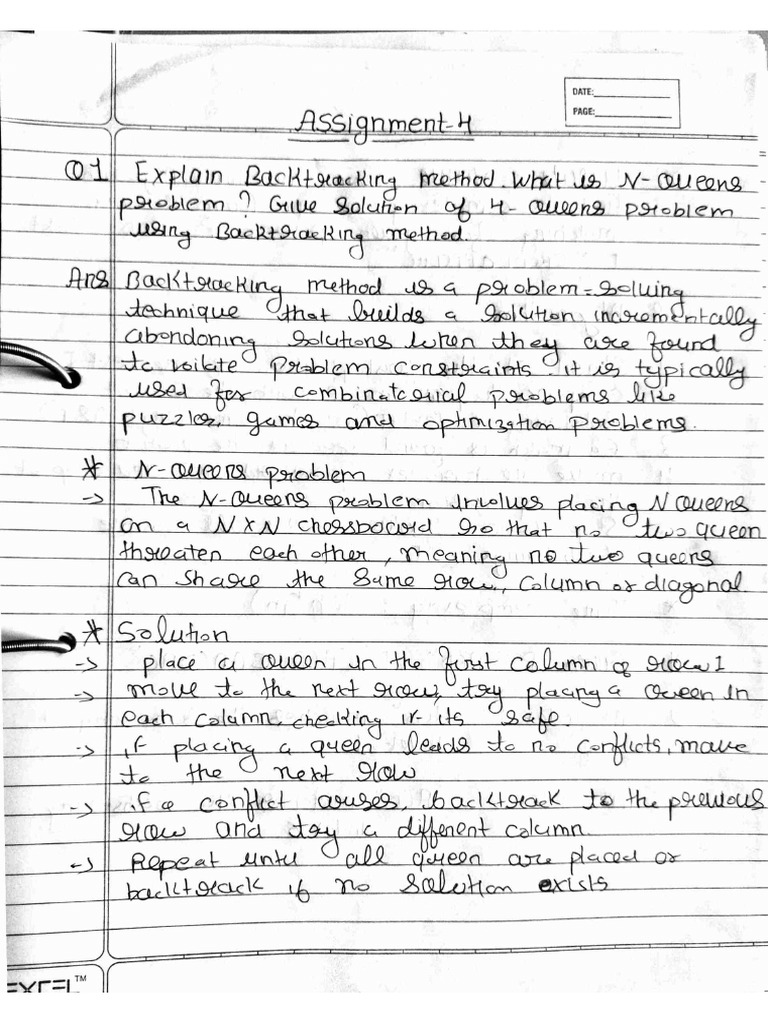 DATE:
PAGE:
Assignment-4
Q1 Explain Backtracking method. What is N-Queens
problem? Give solution of 4-Queens problem
using Backtracking method.
Ans Backtracking method is a problem-solving
technique that builds a solution incrementally
abondoning solutions when they are found
to voilate problem constraints. it is typically
used for combinatorial problems like
puzzles, games and optimization problems.
* N-Queens problem
→ The N-Queens problem involves placing N Queens
on a N×N chessboard so that no two queen
threaten each other, meaning no two queens
can share the same row, column or diagonal.
* Solution
→ place a queen in the first column of row 1
→ move to the next row, try placing a queen in
each column checking if its safe.
→ if placing a queen leads to no conflicts, move
to the next row
→ if a conflict arises, backtrack to the previous
row and try a different column.
→ Repeat until all queen are placed or
backtrack if no solution exists
EXCEL™